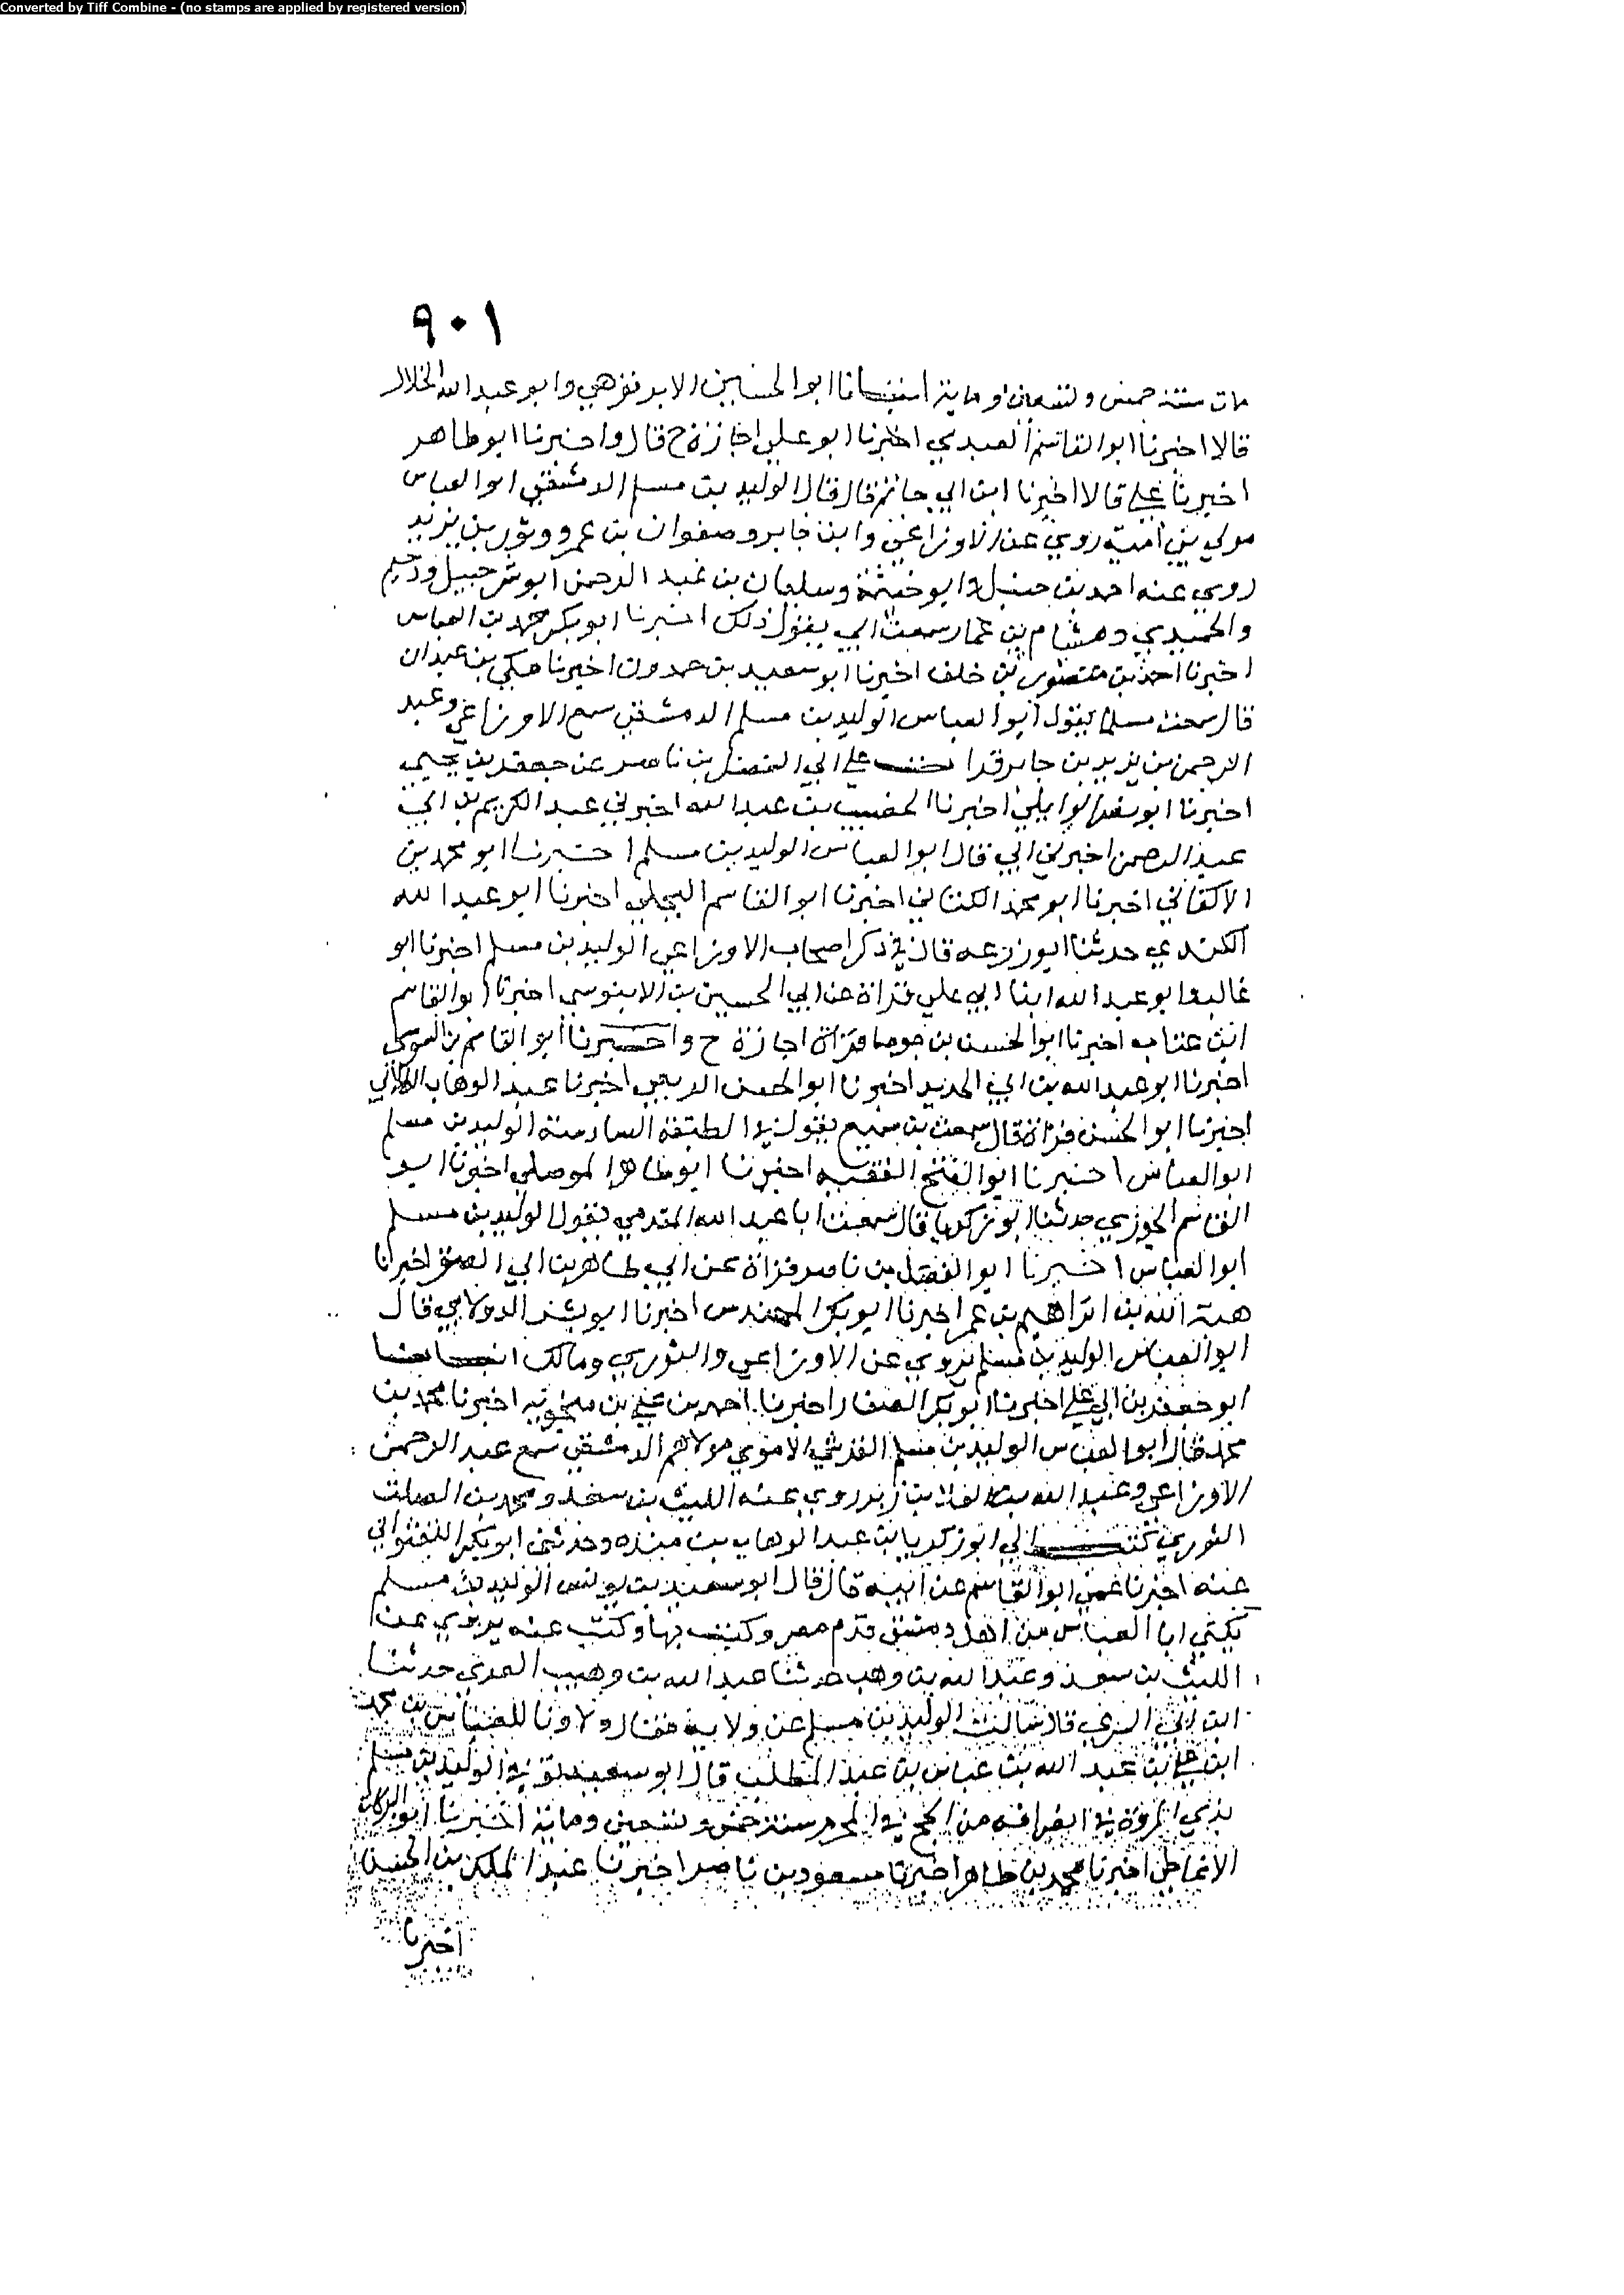 Converted by Tiff Combine - (no stamps are applied by registered version)
٩٠١
مات سنة خمس وتسعين وماية انبانا ابو الحسين الابرقوهي وابو عبد الله الخلال
قالا اخبرنا ابو القاسم العبدي اخبرنا ابو علي اجازة ح قال واخبرنا ابو طاهر
اخبرنا علي قالا اخبرنا ابن ابي حاتم قال قال الوليد بن مسلم الدمشقي ابو العباس
مولى بني امية روي عن الاوزاعي وابن جابر وصفوان بن عمرو وثور بن يزيد
روي عنه احمد بن حنبل وابو خيثمة وسليمان بن عبد الرحمن ابو شرحبيل ودحيم
والحميدي وهشام بن عمار سمعت ابي يقول ذلك اخبرنا ابو بكر محمد بن العباس
اخبرنا احمد بن منصور بن خلف اخبرنا ابو سعيد بن حمدون اخبرنا مكي بن عبدان
قال سمعت مسلما يقول ابو العباس الوليد بن مسلم الدمشقي سمع الاوزاعي وعبد
الرحمن بن يزيد بن جابر قرات علي ابي الفضل بن ناصر عن جعفر بن يحيى
اخبرنا ابو نصر الوايلي اخبرنا الخصيب بن عبد الله اخبرني عبد الكريم بن ابي
عبد الرحمن اخبرني ابي قال ابو العباس الوليد بن مسلم اخبرنا ابو محمد بن
الاكفاني اخبرنا ابو محمد الكتاني اخبرنا ابو القاسم البجلي اخبرنا ابو عبد الله
الكندي حدثنا ابو زرعه قال في ذكر اصحاب الاوزاعي الوليد بن مسلم اخبرنا ابو
غالب وابو عبد الله ابنا ابي علي قراة عن ابي الحسين بن الابنوسي اخبرنا ابو القاسم
ابن عتاب اخبرنا ابو الحسن بن جوصا قراة اجازة ح واخبرنا ابو القاسم بن السوسي
اخبرنا ابو عبد الله بن ابي الحديد اخبرنا ابو الحسن الربعي اخبرنا عبد الوهاب الكلابي
اخبرنا ابو الحسن قراة قال سمعت بن سميع يقول في الطبقة السادسة الوليد بن مسلم
ابو العباس اخبرنا ابو الفتح الفقيه اخبرنا ابو طاهر الموصلي اخبرنا ابو
القاسم الجوزي حدثنا ابو زكريا قال سمعت ابا عبد الله المقدمي يقول الوليد بن مسلم
ابو العباس اخبرنا ابو الفضل بن ناصر قراة عن ابي طاهر بن ابي الصقر اخبرنا
هبة الله بن ابراهيم بن عمر اخبرنا ابو بكر المهندس اخبرنا ابو بشر الدولابي قال
ابو العباس الوليد بن مسلم يروي عن الاوزاعي والثوري ومالك انبانا
ابو جعفر بن ابي علي اخبرنا ابو بكر الصفار اخبرنا احمد بن علي بن منجويه اخبرنا محمد بن
محمد قال ابو العباس الوليد بن مسلم القرشي الاموي مولاهم الدمشقي سمع عبد الرحمن
الاوزاعي وعبد الله بن العلا بن زبر روي عنه الليث بن سعد ومحمد بن الصلت
التوري كتب الي ابو زكريا بن عبد الوهاب بن منده وحدثني ابو بكر اللفتواني
عنه اخبرنا عمي ابو القاسم عن ابيه قال قال ابو سعيد بن يونس الوليد بن مسلم
يكنى ابا العباس من اهل دمشق قدم مصر وكتب بها وكتب عنه يروي عن
الليث بن سعد وعبد الله بن وهب حدثنا عبد الله بن وهيب العدي حدثنا
ابن ابي السري قال سالت الوليد بن مسلم عن ولايه فقال ولاونا للعباس بن محمد
ابن علي بن عبد الله بن عباس بن عبد المطلب قال ابو سعيد توفي الوليد بن مسلم
بذي المروة في انصرافه من الحج في المحرم سنة خمس وتسعين وماية اخبرنا ابو البركات
الانماطي اخبرنا محمد بن طاهر اخبرنا مسعود بن ناصر اخبرنا عبد الملك بن الحسن
اخبرنا